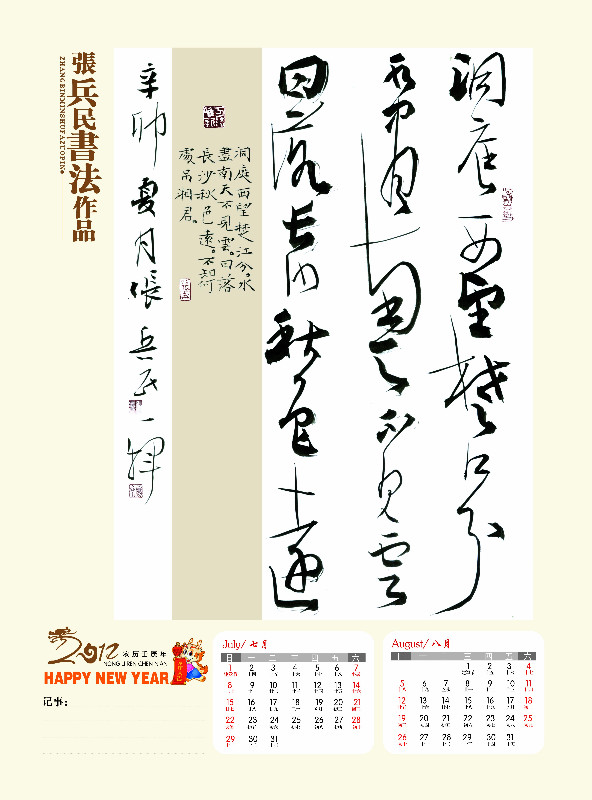 張兵民書法作品
ZHANGBINMINSHUFAZUOPIN
洞庭西望楚江分
水盡南天不見雲
日落長沙秋色遠
洞庭西望楚江分。水
盡南天不見雲。日落
長沙秋色遠。不知何
處吊湘君。
辛卯夏月張兵民一揮
2012 农历壬辰年
NONG LI REN CHEN NIAN
HAPPY NEW YEAR
记事:
July/ 七月
日 一 二 三 四 五 六
1 2 3 4 5 6 7
8 9 10 11 12 13 14
15 16 17 18 19 20 21
22 23 24 25 26 27 28
29 30 31
August/ 八月
日 一 二 三 四 五 六
1 2 3 4
5 6 7 8 9 10 11
12 13 14 15 16 17 18
19 20 21 22 23 24 25
26 27 28 29 30 31